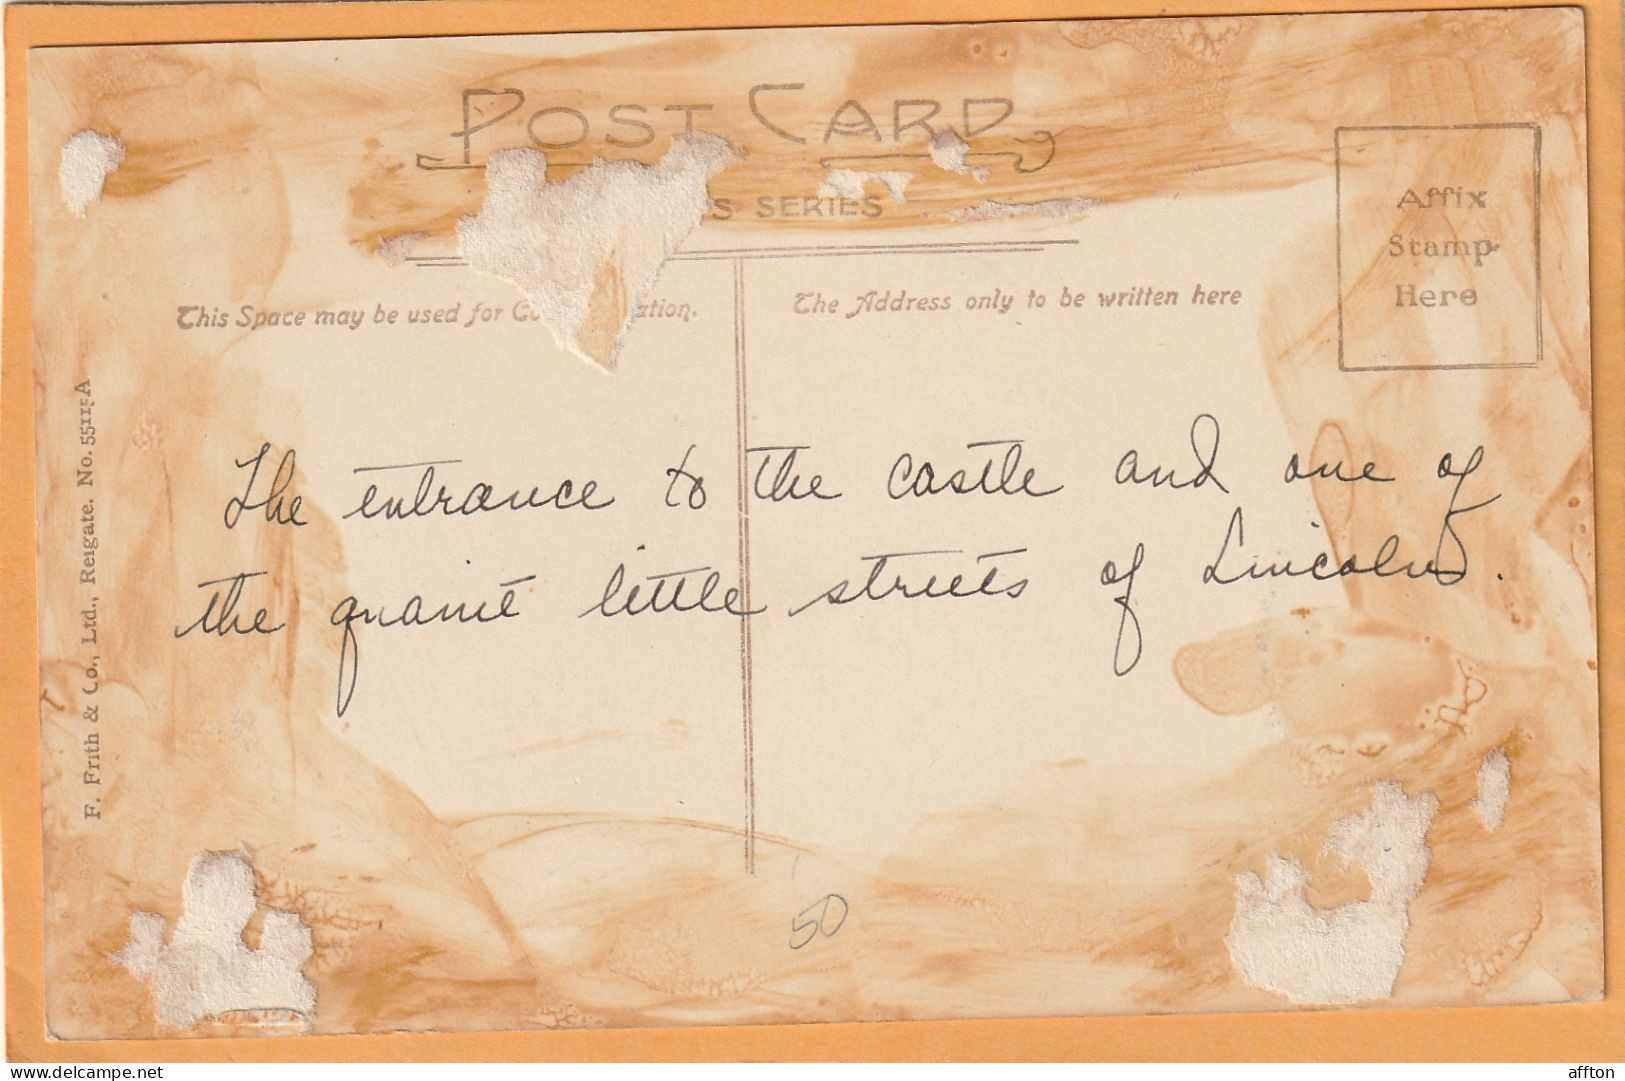 POST CARD
S SERIES
This Space may be used for Co ation.
The Address only to be written here
Affix
Stamp
Here
F. Frith & Co., Ltd., Reigate. No. 55115A
The entrance to the castle and one of
the quaint little streets of Lincoln.
50
Delcampe.net
affton